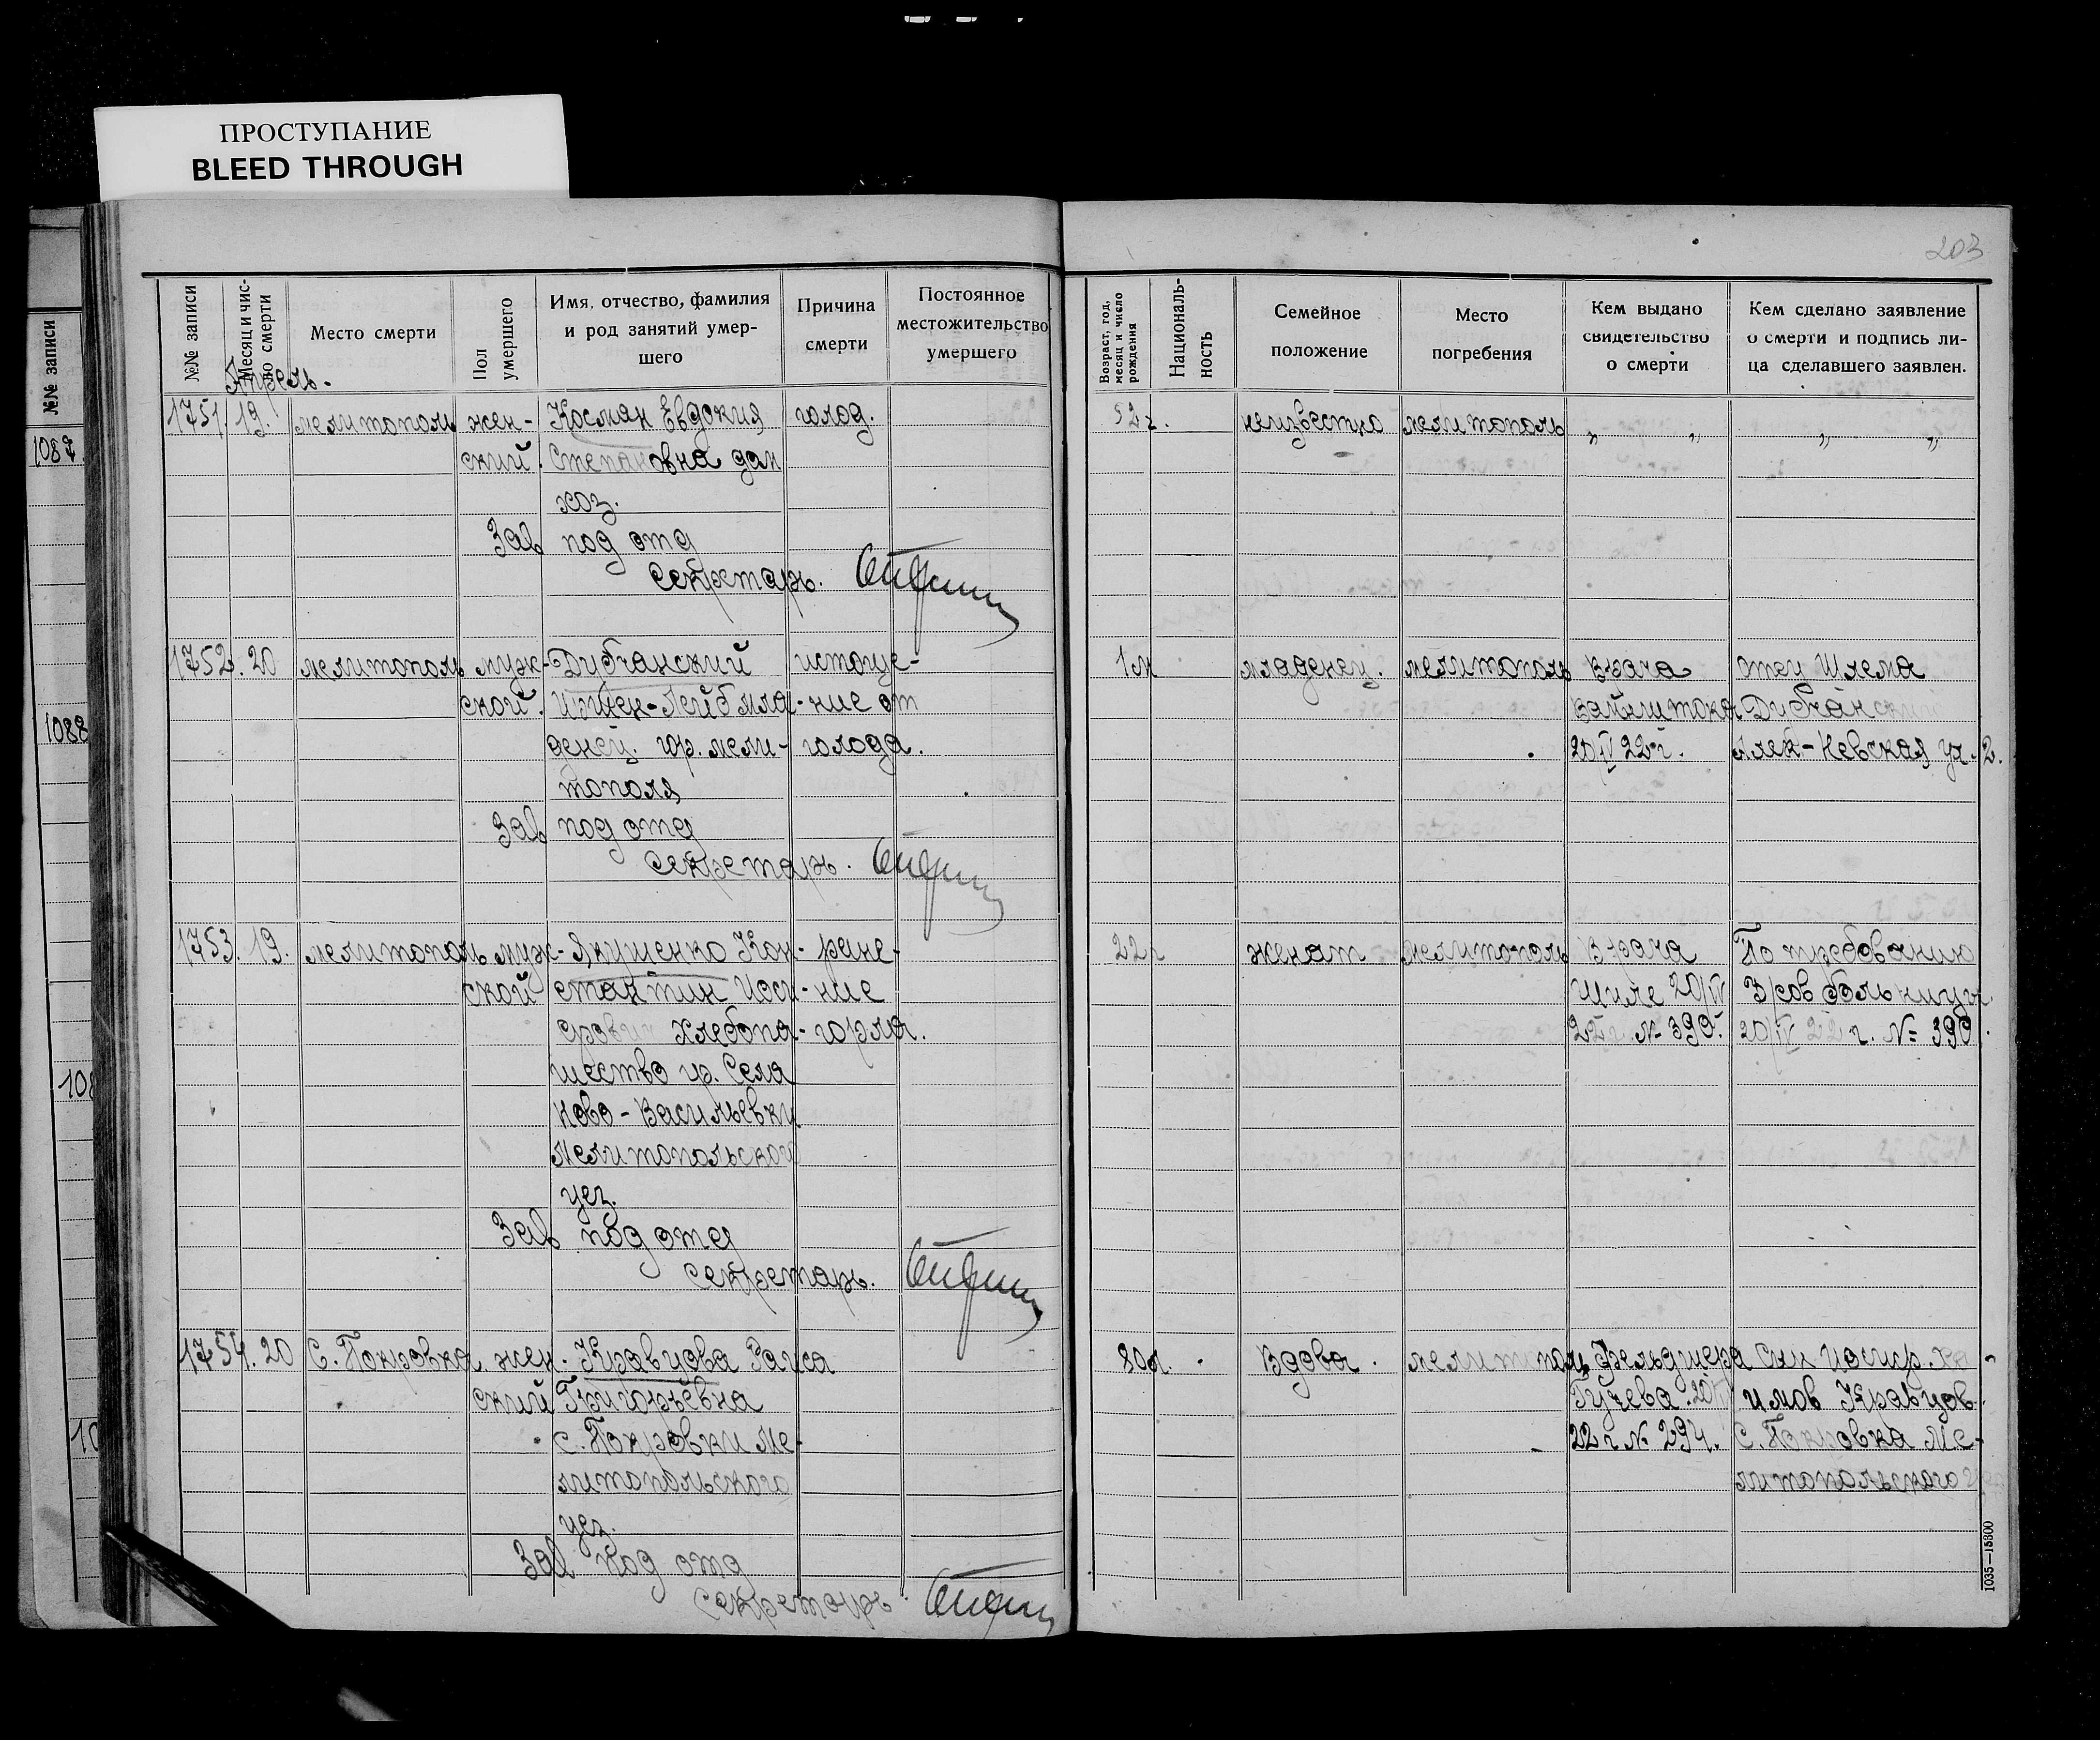 ПРОСТУПАНИЕ
BLEED THROUGH
203
№№ записи
Месяц и чис-
ло смерти
Место смерти
Пол
умершего
Имя, отчество, фамилия
и род занятий умер-
шего
Причина
смерти
Постоянное
местожительство
умершего
Возраст, год,
месяц и число
рождения
Националь-
ность
Семейное
положение
Место
погребения
Кем выдано
свидетельство
о смерти
Кем сделано заявление
о смерти и подпись ли-
ца сделавшего заявлен.
№№ записи
1087
1088
108
10
Апрель.
1751 19. мелитополь жен- Косман Евдокия голод. 52 г. неизвестно мелитополь „ „ „ „
ский. Степановна дом
хоз.
Зав под отд
Секретарь.
1752. 20 мелитополь муж- Дибчанский истоще- 1 м младенец. мелитополь Врача отец Шлема
ской. -Лейб мла- ние от Дибчанский
денец. гр. мели- голода. 20/IV 22 г. Алек-Невская ул. 2.
тополя
Зав под отд
секретарь.
1753. 19. мелитополь муж- Якушенко Кон- ране- 22 г женат мелитополь Врача По требованию
ской стантин Иоси- ние Шиле 20/IV 3 сов больницы
фович хлебопа- горла. 22 г. № 390. 20/IV 22 г. № 390.
шество гр. Села
Ново-Васильевки
Мелитопольского
уез.
Зав под отд
секретарь.
1754. 20 С. Покровка. жен- Кравцова Раиса 80 л. Вдова. мелитополь Фельдшера Сын Иосиф
ский Григорьевна 20/IV имов Кравцов.
с. Покровки Ме- 22 г № 294. С. Покровка Ме-
литопольского литопольского
уез.
Зав под отд
секретарь
1035—15800